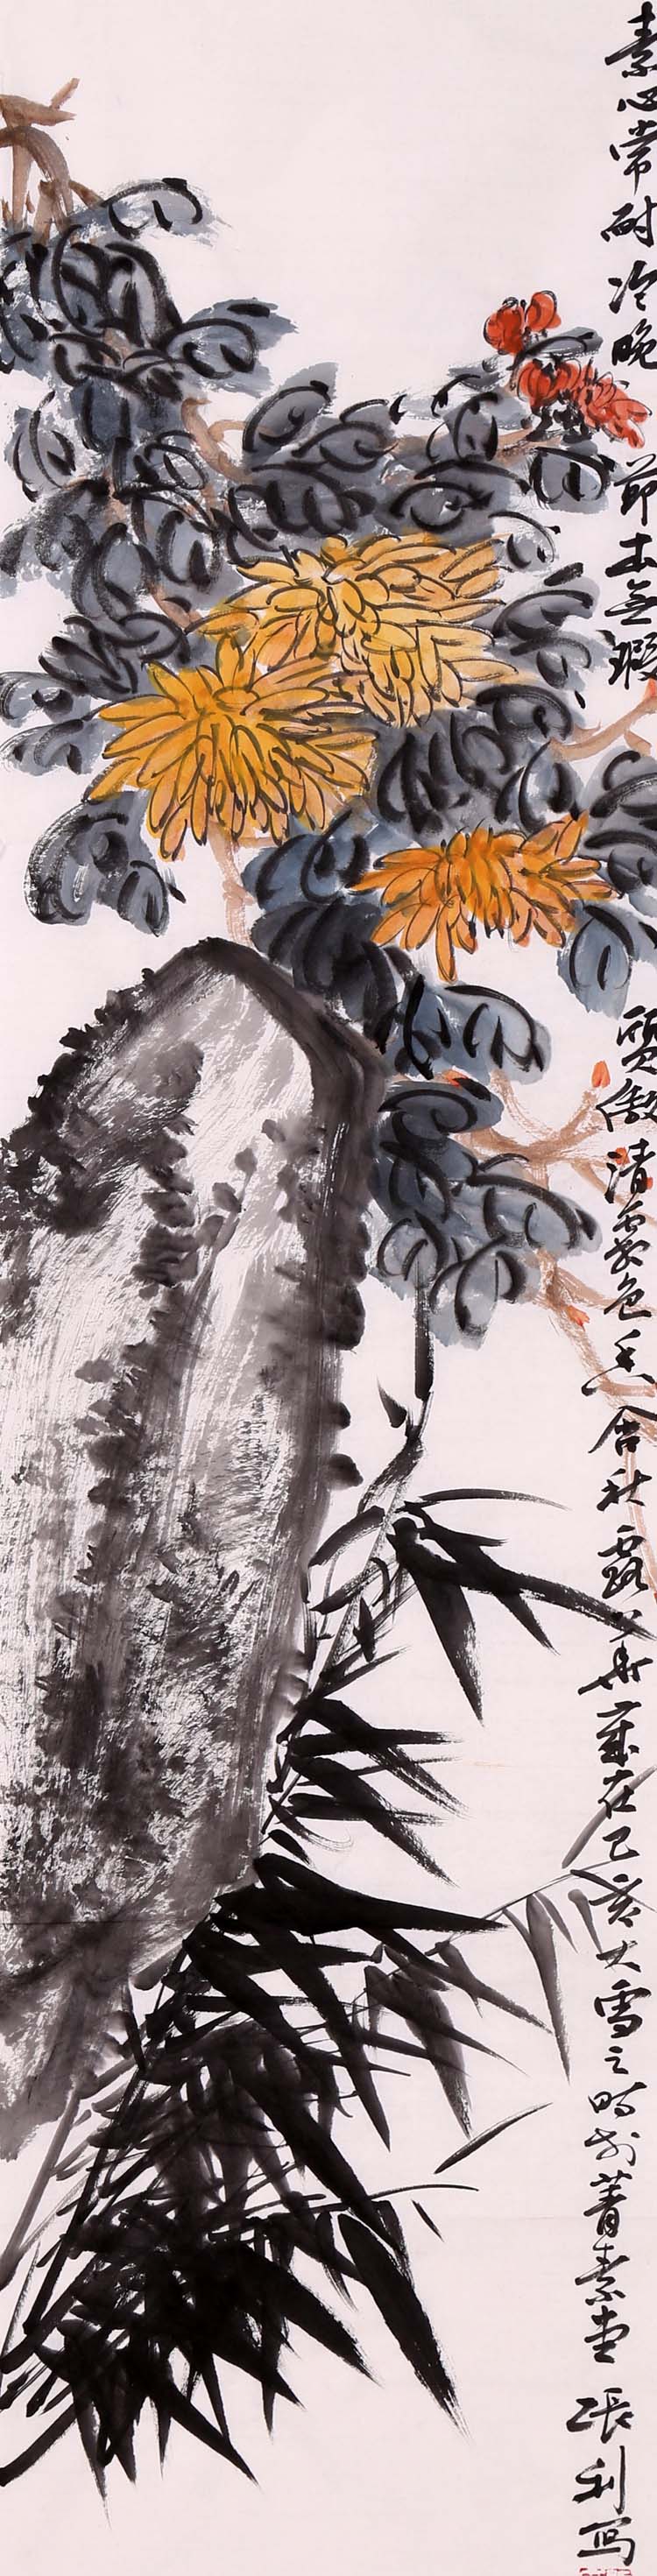 素心常耐冷晚節本無瑕質傲清霜色香含秋露華歲在己亥大雪之時於菁素堂張利寫